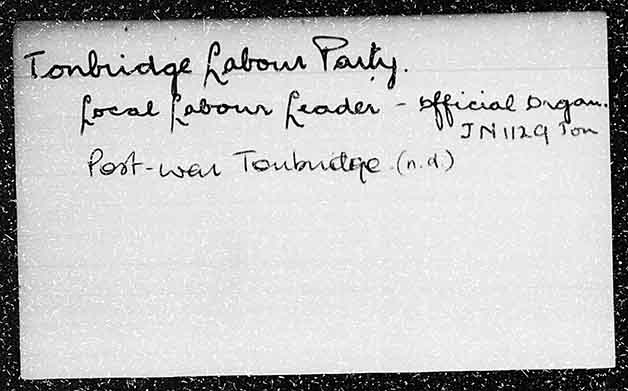 Tonbridge Labour Party.
Local Labour Leader - Official Organ.
JN 1129 Ton
Post-war Tonbridge (n.d)